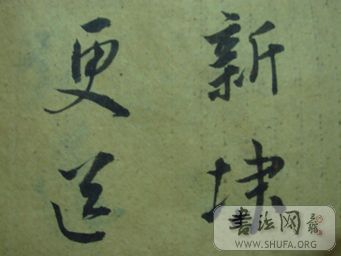 新埭
更
書法网
WWW.SHUFA.ORG